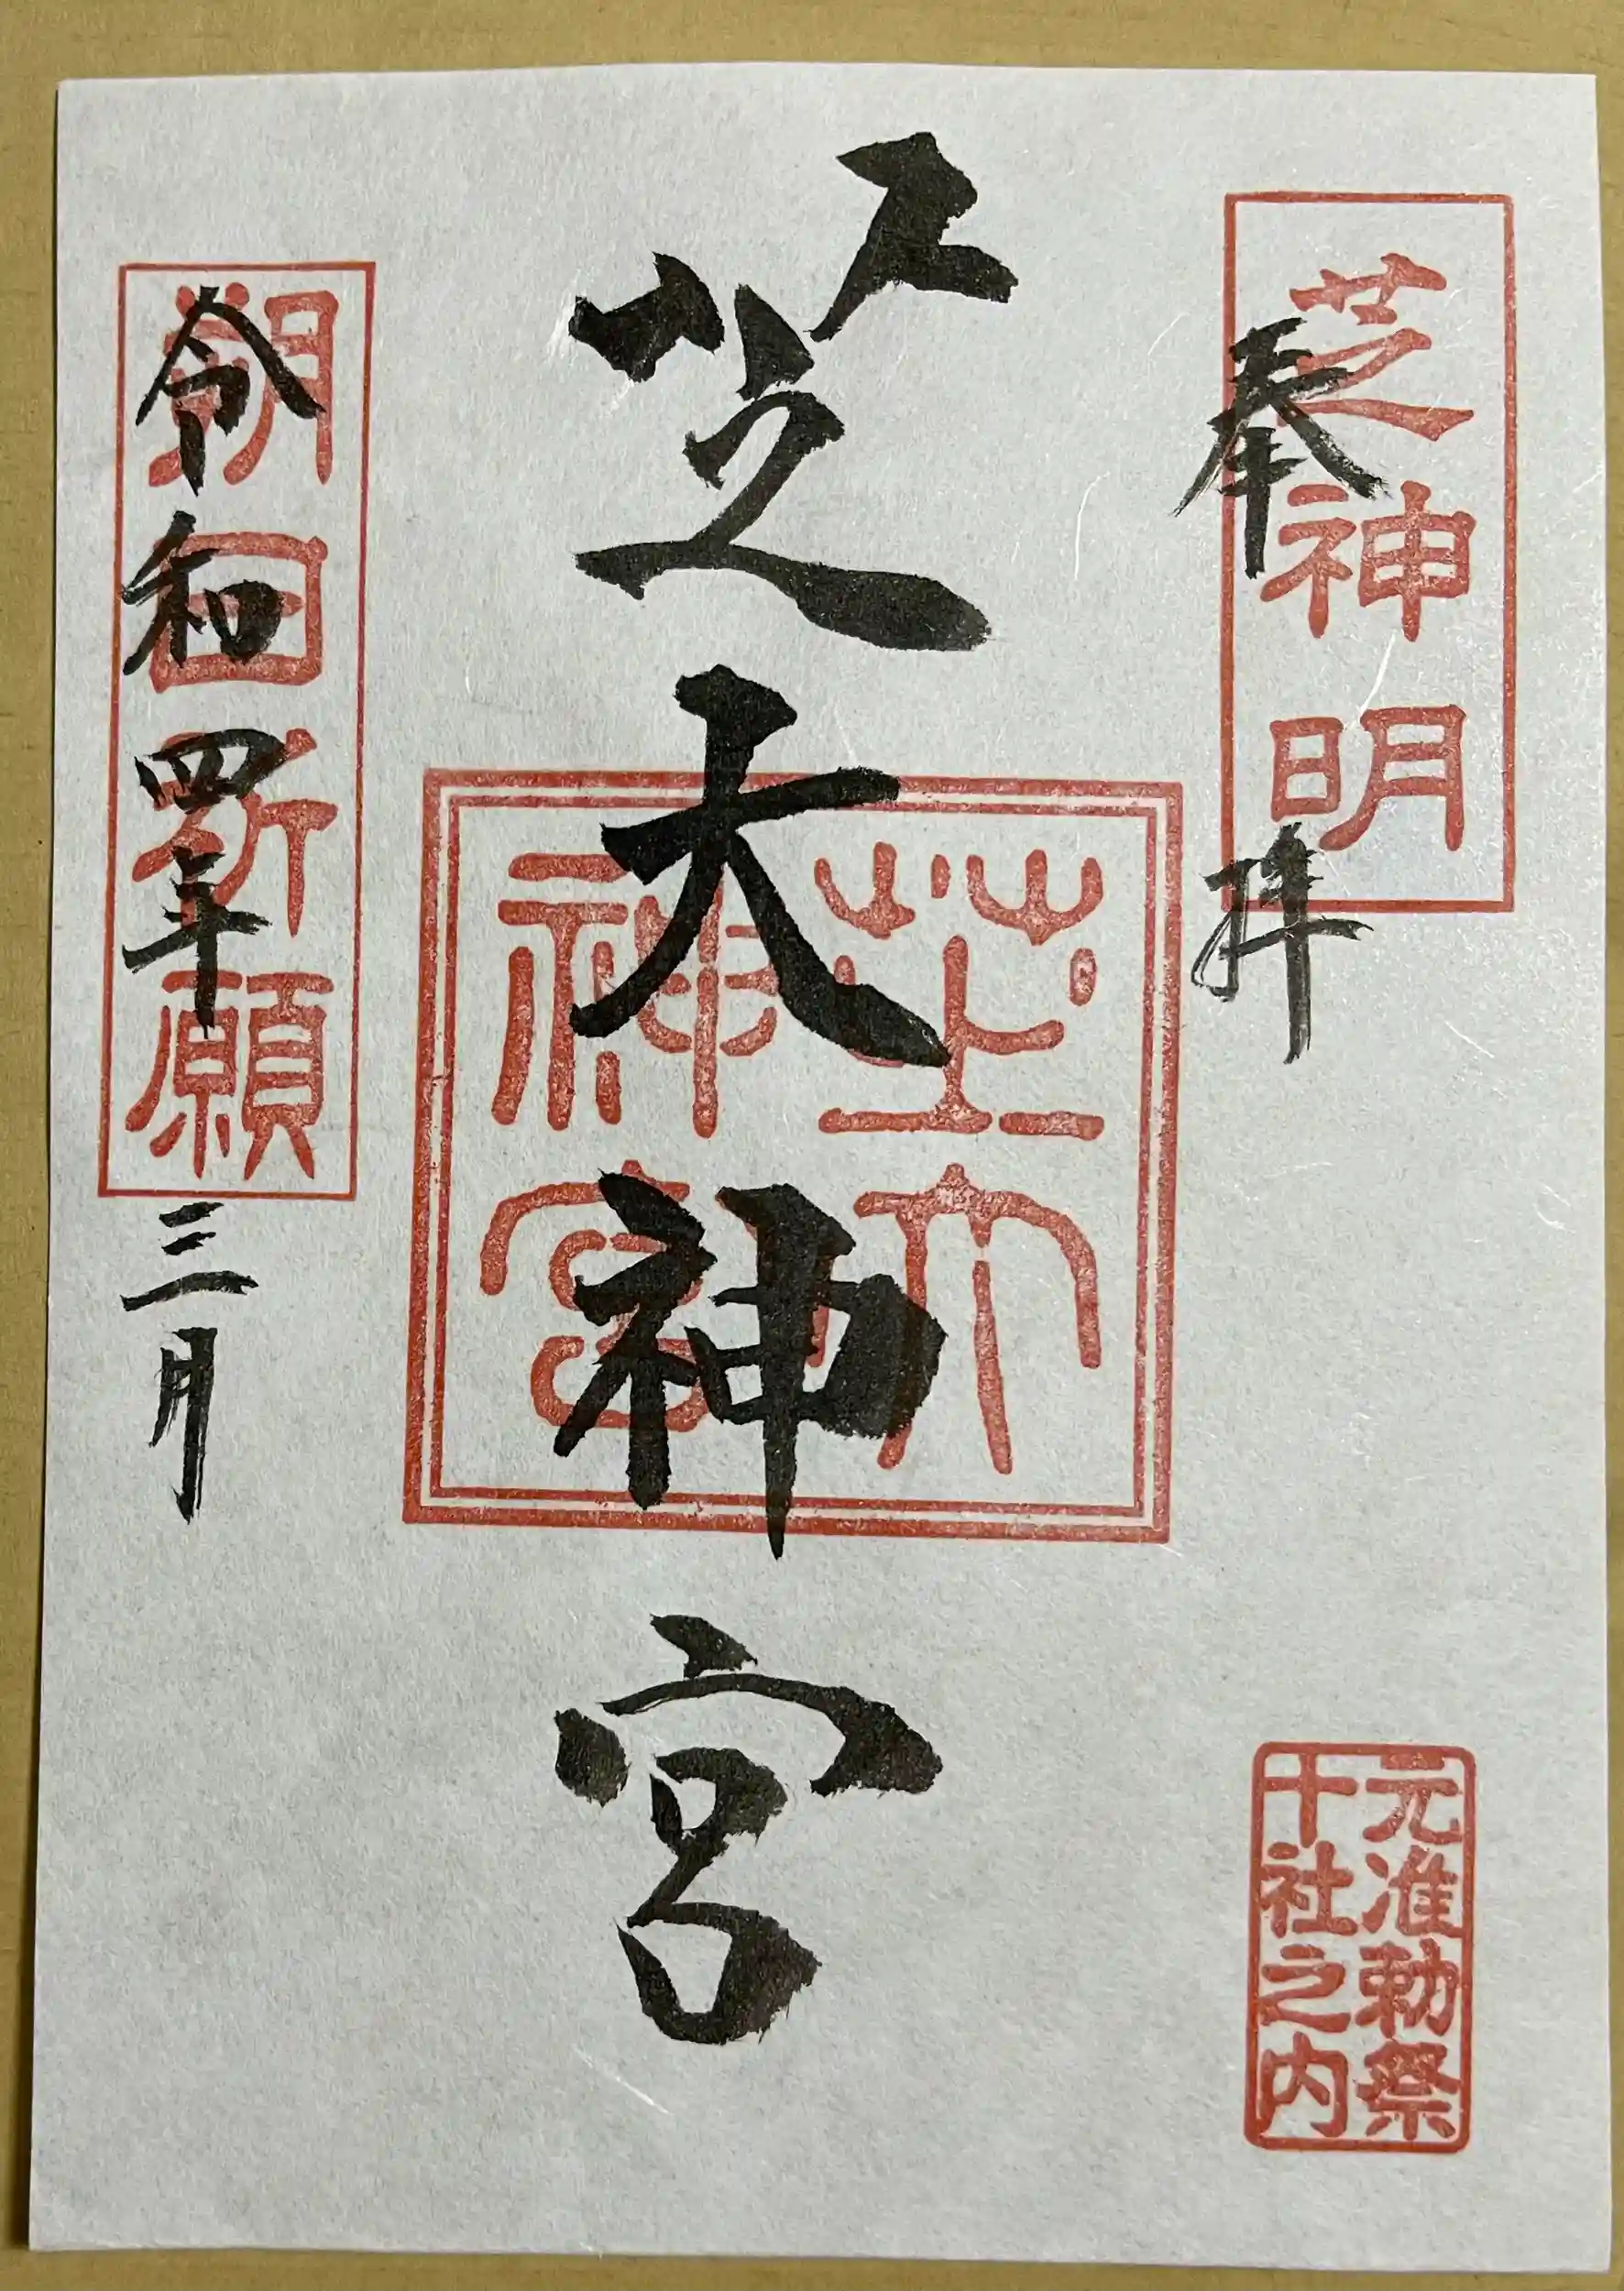 奉拝
芝神明
芝大神宮
芝大神宮
令和四年三月
朔日祈願
元准勅祭
十社之内